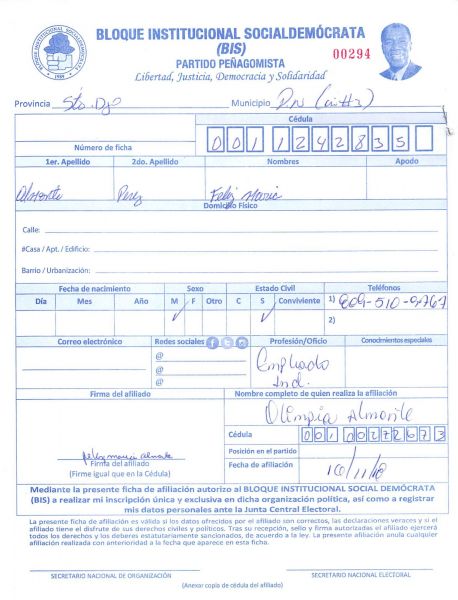 BLOQUE INSTITUCIONAL SOCIALDEMÓCRATA
(BIS)
PARTIDO PEÑAGOMISTA
00294
Libertad, Justicia, Democracia y Solidaridad
BLOQUE INSTITUCIONAL SOCIALDEMÓCRATA
Provincia Sto. Dgo Municipio
Cédula
Número de ficha 001 1242835
1er. Apellido 2do. Apellido Nombres Apodo
Almonte Perez Feliz Maria
Domicilio Físico
Calle:
#Casa / Apt. / Edificio:
Barrio / Urbanización:
Fecha de nacimiento Sexo Estado Civil Teléfonos
Día Mes Año M F Otro C S Conviviente 1) 809-510-9767
✓ ✓ 2)
Correo electrónico Redes sociales Profesión/Oficio Conocimientos especiales
@ Empleado
@ Ind.
@
Firma del afiliado Nombre completo de quien realiza la afiliación
Olimpia Almonte
Cédula 001 0027267 3
feliz maria almonte Posición en el partido
Firma del afiliado Fecha de afiliación 10/11/18
(Firme igual que en la Cédula)
Mediante la presente ficha de afiliación autorizo al BLOQUE INSTITUCIONAL SOCIAL DEMÓCRATA
(BIS) a realizar mi inscripción única y exclusiva en dicha organización política, así como a registrar
mis datos personales ante la Junta Central Electoral.
La presente ficha de afiliación es válida si los datos ofrecidos por el afiliado son correctos, las declaraciones veraces y si el
afiliado tiene el disfrute de sus derechos civiles y políticos. Tras su recepción, sello y firma autorizada el afiliado ejercerá
todos los derechos y los deberes estatutariamente sancionados, de acuerdo a la ley. La presente afiliación anula cualquier
afiliación realizada con anterioridad a la fecha que aparece en esta ficha.
SECRETARIO NACIONAL DE ORGANIZACIÓN SECRETARIO NACIONAL ELECTORAL
(Anexar copia de cédula del afiliado)